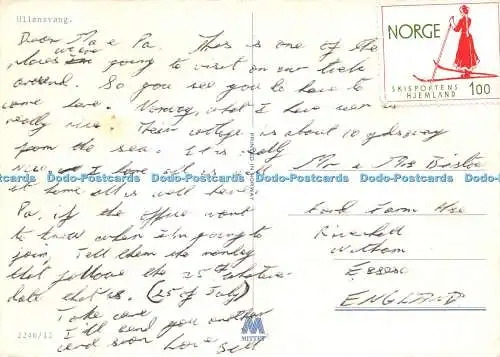 Ullensvang.
Dear Ma & Pa. This is one of the
places we're going to visit on our trek
around. So you see you do have to
come here. Norway, what I have seen is
really nice. Their cottage is about 10 yds away
from the sea. It is really
nice & I love it
at home all is well
Pa, if the office want
to know when I'm going to
join. Tell them the monday
that follows the 25th whatever
date that is. (25 of July)
Take care
I'll send you another
card soon Love
NORGE
SKISPORTENS
HJEMLAND 100
Mr & Mrs
Ford Farm Hse
Rivenhall
Witham
Essex
ENGLAND
PRODUCED IN NORWAY
2246/12
M
MITTET
Dodo-Postcards Dodo-Postcards Dodo-Postcards Dodo-Postcards Dodo-Postcards